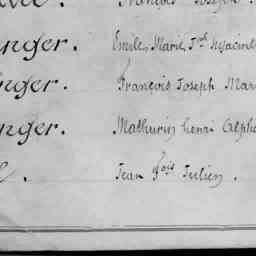 François Joseph
nger. Emile Marie Jph Hyacint
nger. François Joseph Mar
nger. Mathurin henri Alpho
Jean fois Julien.